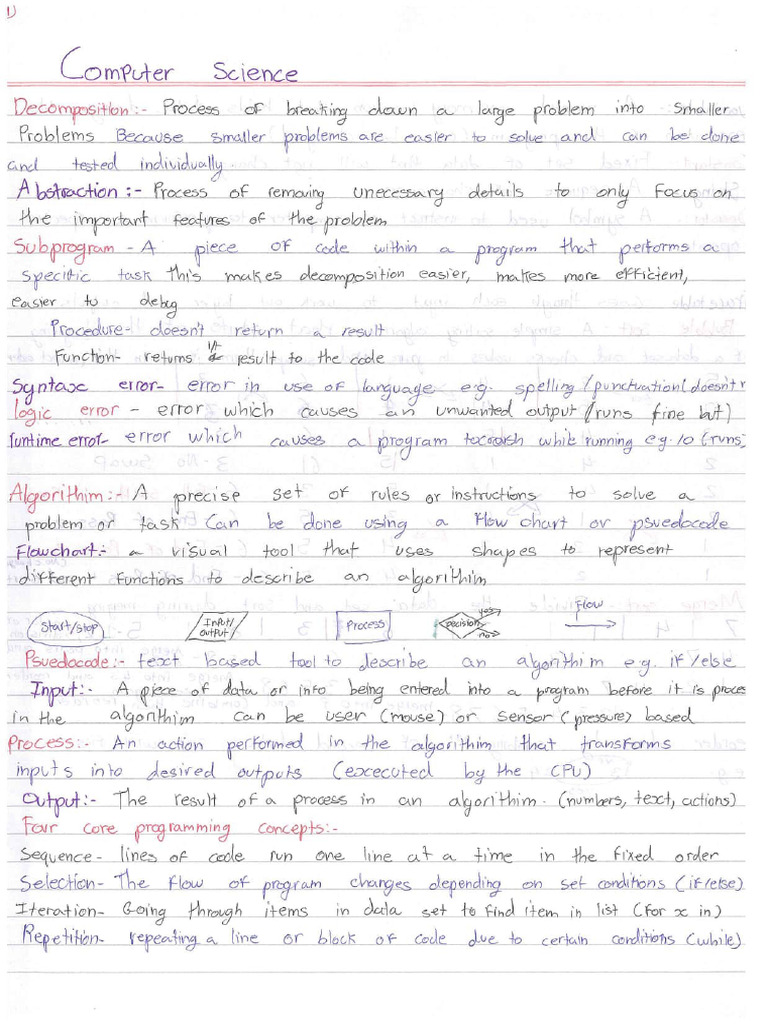 1)
Computer Science
Decomposition:- Process of breaking down a large problem into smaller
Problems Because smaller problems are easier to solve and can be done
and tested individually
Abstraction:- Process of removing unecessary details to only Focus on
the important features of the problem
Subprogram - A piece of code within a program that performs a
specific task this makes decomposition easier, makes more efficient,
easier to debug
Procedure- doesn't return a result
Function- returns result to the code
Syntax error- error in use of language e.g. spelling/punctuation (doesn't r
logic error - error which causes an unwanted output (runs fine but)
runtime error- error which causes a program to crash while running eg. 10 (runs,
Algorithim:- A precise set of rules or instructions to solve a
problem or task Can be done using a Flow chart or psuedocode
Flowchart:- a visual tool that uses shapes to represent
different functions to describe an algorithim
Start/stop
Input/
output
Process
decision
yes
no
Flow
Psuedocode:- text based tool to describe an algorithim e.g. if/else
Input:- A piece of data or info being entered into a program before it is proces
in the algorithim can be user (mouse) or sensor (pressure) based
Process:- An action performed in the algorithim that transforms
inputs into desired outputs (excecuted by the CPU)
Output:- The result of a process in an algorithim. (numbers, text, actions)
Four core programming concepts:-
Sequence- lines of code run one line at a time in the fixed order
Selection- The flow of program changes depending on set conditions (if/else)
Iteration- Going through items in data set to find item in list (for x in)
Repetition- repeating a line or block of code due to certain conditions (while)